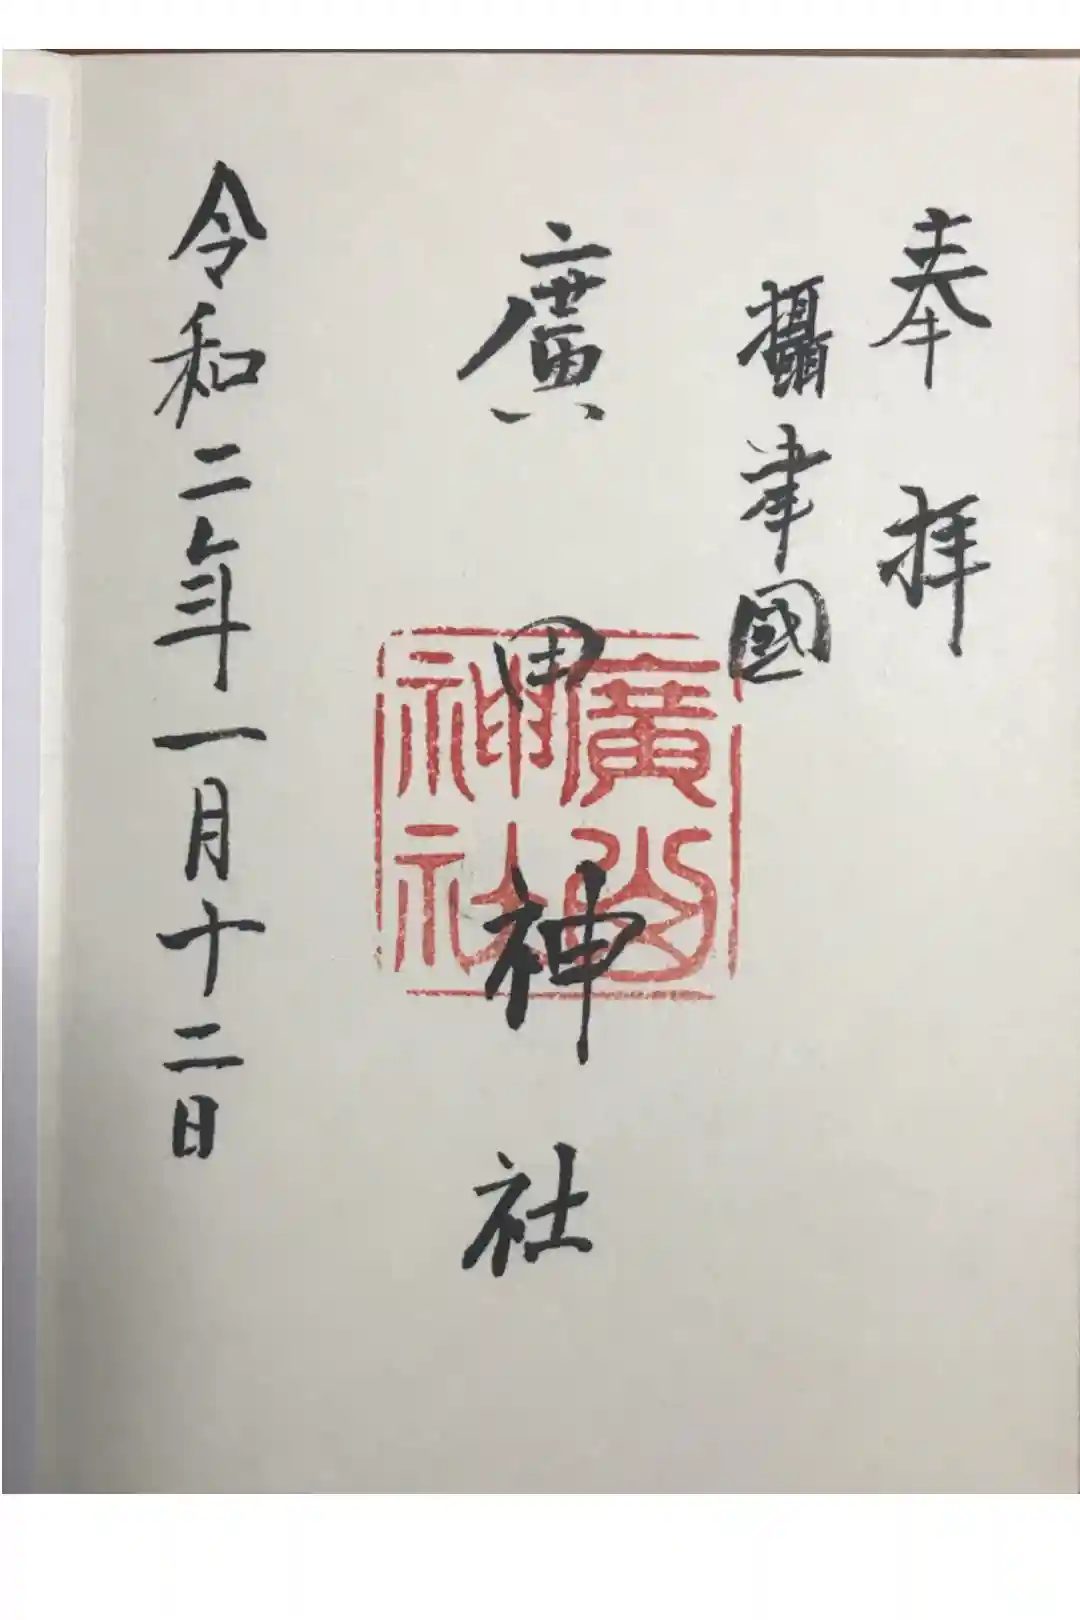 奉拝
攝津國
廣田神社
令和二年一月十二日
廣
神社